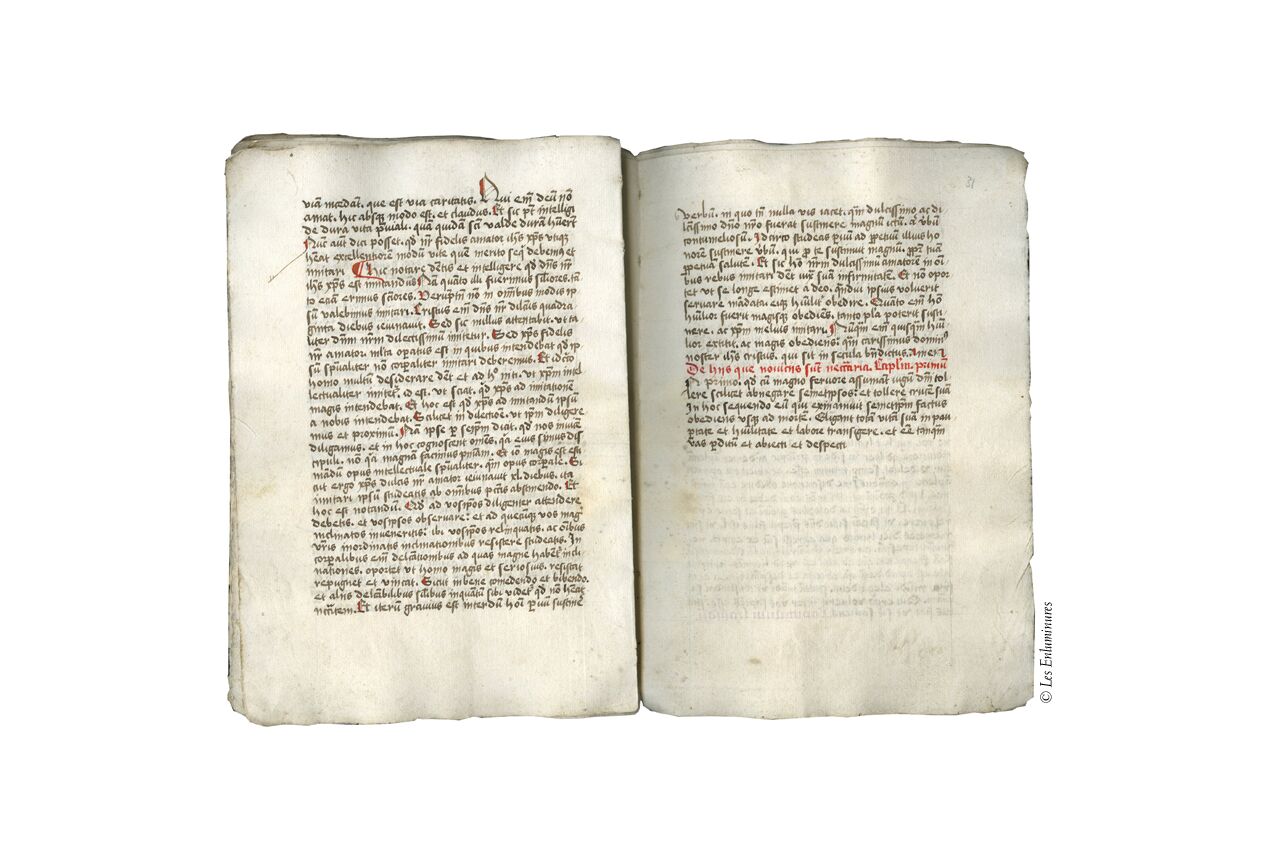 viā incedant. que est via caritatis. Qui em̄ deū nō
amat. hic absq̨ modo est. et claudus. Et sic pt̄ intelligi
de dura vita spūali. quā quidā sc̄i valde durā hūerūt
Nūc aut̄ dici posset. qd̄ nr̄ fidelis amator ih̄s xp̄s utiq̨
heat excellentiorē modū vite quē merito seq̄ debemꝰ et
imitari. Hic notare det̄is et intelligere qd̄ dn̄s nr̄
ih̄s xp̄s est imitandus. Nā quāto illi fuerimus sīliores. tā
to etiā erimus sc̄iores. Verūptn̄ nō in om̄ibus modis ip
sū valebimus imitari. Cristus em̄ dn̄s nr̄ dilc̄us quadra
ginta diebus ieiunauit. Sed sic nullus attentabit. ut ta
liter dn̄m nr̄m dilectissimū imitetur. Sed xp̄s fidelis
nr̄ amator. ml̄ta opatus est in quibus intendebat qd̄ ip
sū spūaliter nō corpaliter imitari deberemus. Et idc̄o
homo multū desiderare det̄ et ad h° niti. ut xp̄m intel
lectualiter imitet̄. id est. ut sciat. qd̄ xp̄s ad imitationē
magis intendebat. Et hoc est qd̄ xp̄s ad imitandū ipsū
a nobis intendebat. Scilicet in dilectiōe. ut ip̄m diligere
mus et proximū. Nā ipse p seip̄m dicat. qd̄ nos inuicē
diligamus. et in hoc cognoscent om̄es. qa eius simus dis
cipuli. nō qa magnā facimus pn̄iam. Et iō magis est esti
madū opus intellectuale spūaliter. qm̄ opus corpale. Si
cut ergo xp̄s dulcis nr̄ amator ieiunauit xl. diebus. ita
imitari ipsū studeatis ab om̄ibus pctīs abstinendo. Et
hoc est notandū. Qd̄ ad vosip̄os diligenter attendere
debetis. et vosipsos obseruare. et ad quecūq̨ vos mag
inclinatos inueneritis. ibi vosip̄os relinquatis. ac oībus
vr̄is inordinatis inclinationibus resistere studeatis. In
corpalibus em̄ delc̄ationibus ad quas magne habet̄ incli
nationes. oportet ut homo magis et seriosius. resistat
repugnet et vincat. Sicut in bene comedendo et bibendo.
et aliis delc̄abilibus sīlibus inquātū sibi videt̄ qd̄ nō heat
nccītem. Et iterū grauius est interdū hoī p̱uū sustinē
31
verbū. in quo tn̄ nulla vis iacet. qm̄ dulcissimo ac di
lc̄issimo dn̄o nr̄o fuerat sustinere magnū ictū. a v̄bū
contumeliosū. Idcirco studeas p̱uū ad ppetuū illius ho
norē sustinere v̄bū. qui p te sustinuit magnū. ppt̄ tuā
ppetuā salutē. Et sic h° nr̄m dulcissimū amatorē in oī
bus rebus imitari det̄ iux̄ suā infirmitatē. Et nō opor
tet ut se longe estimet a deo. qn̄dui ipsus voluerit
seruare mādata. eiq̨ hūilit̄ obedire. Quāto em̄ h°
hūilior fuerit magisq̨ obediens. tanto pla poterit susti
nere. ac xp̄m melius imitari. Nūqm̄ em̄ quisqm̄ hūi
lior extitit. ac magis obediens. qm̄ carissimus dominꝰ
noster ih̄s cristus. qui sit in secula bn̄dictus. Amen.
De hiis que nouiciis sūt necc̄aria. Caplm̄. primū
In primo. qd̄ cū magno feruore assumāt iugū dn̄i tol
lere scilicet abnegare semetipsos. et tollere crucē suā
In hoc sequendo eū qui exinaniuit semetip̄m factus
obediens usq̨ ad mortē. Eligant totā vitā suā in pau
ptate et hūilitate et labore transigere. et ēē tanqm̄
vas pditū et abiecti et despecti
© Les Enluminures